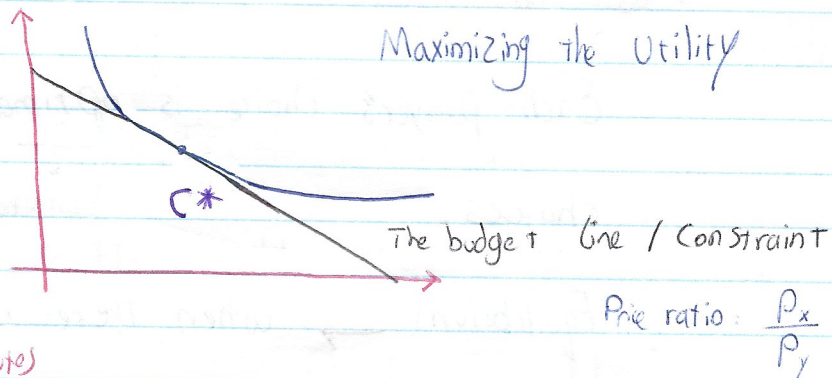 Maximizing the Utility
C*
The budget line / Constraint
Price ratio: Px
Py